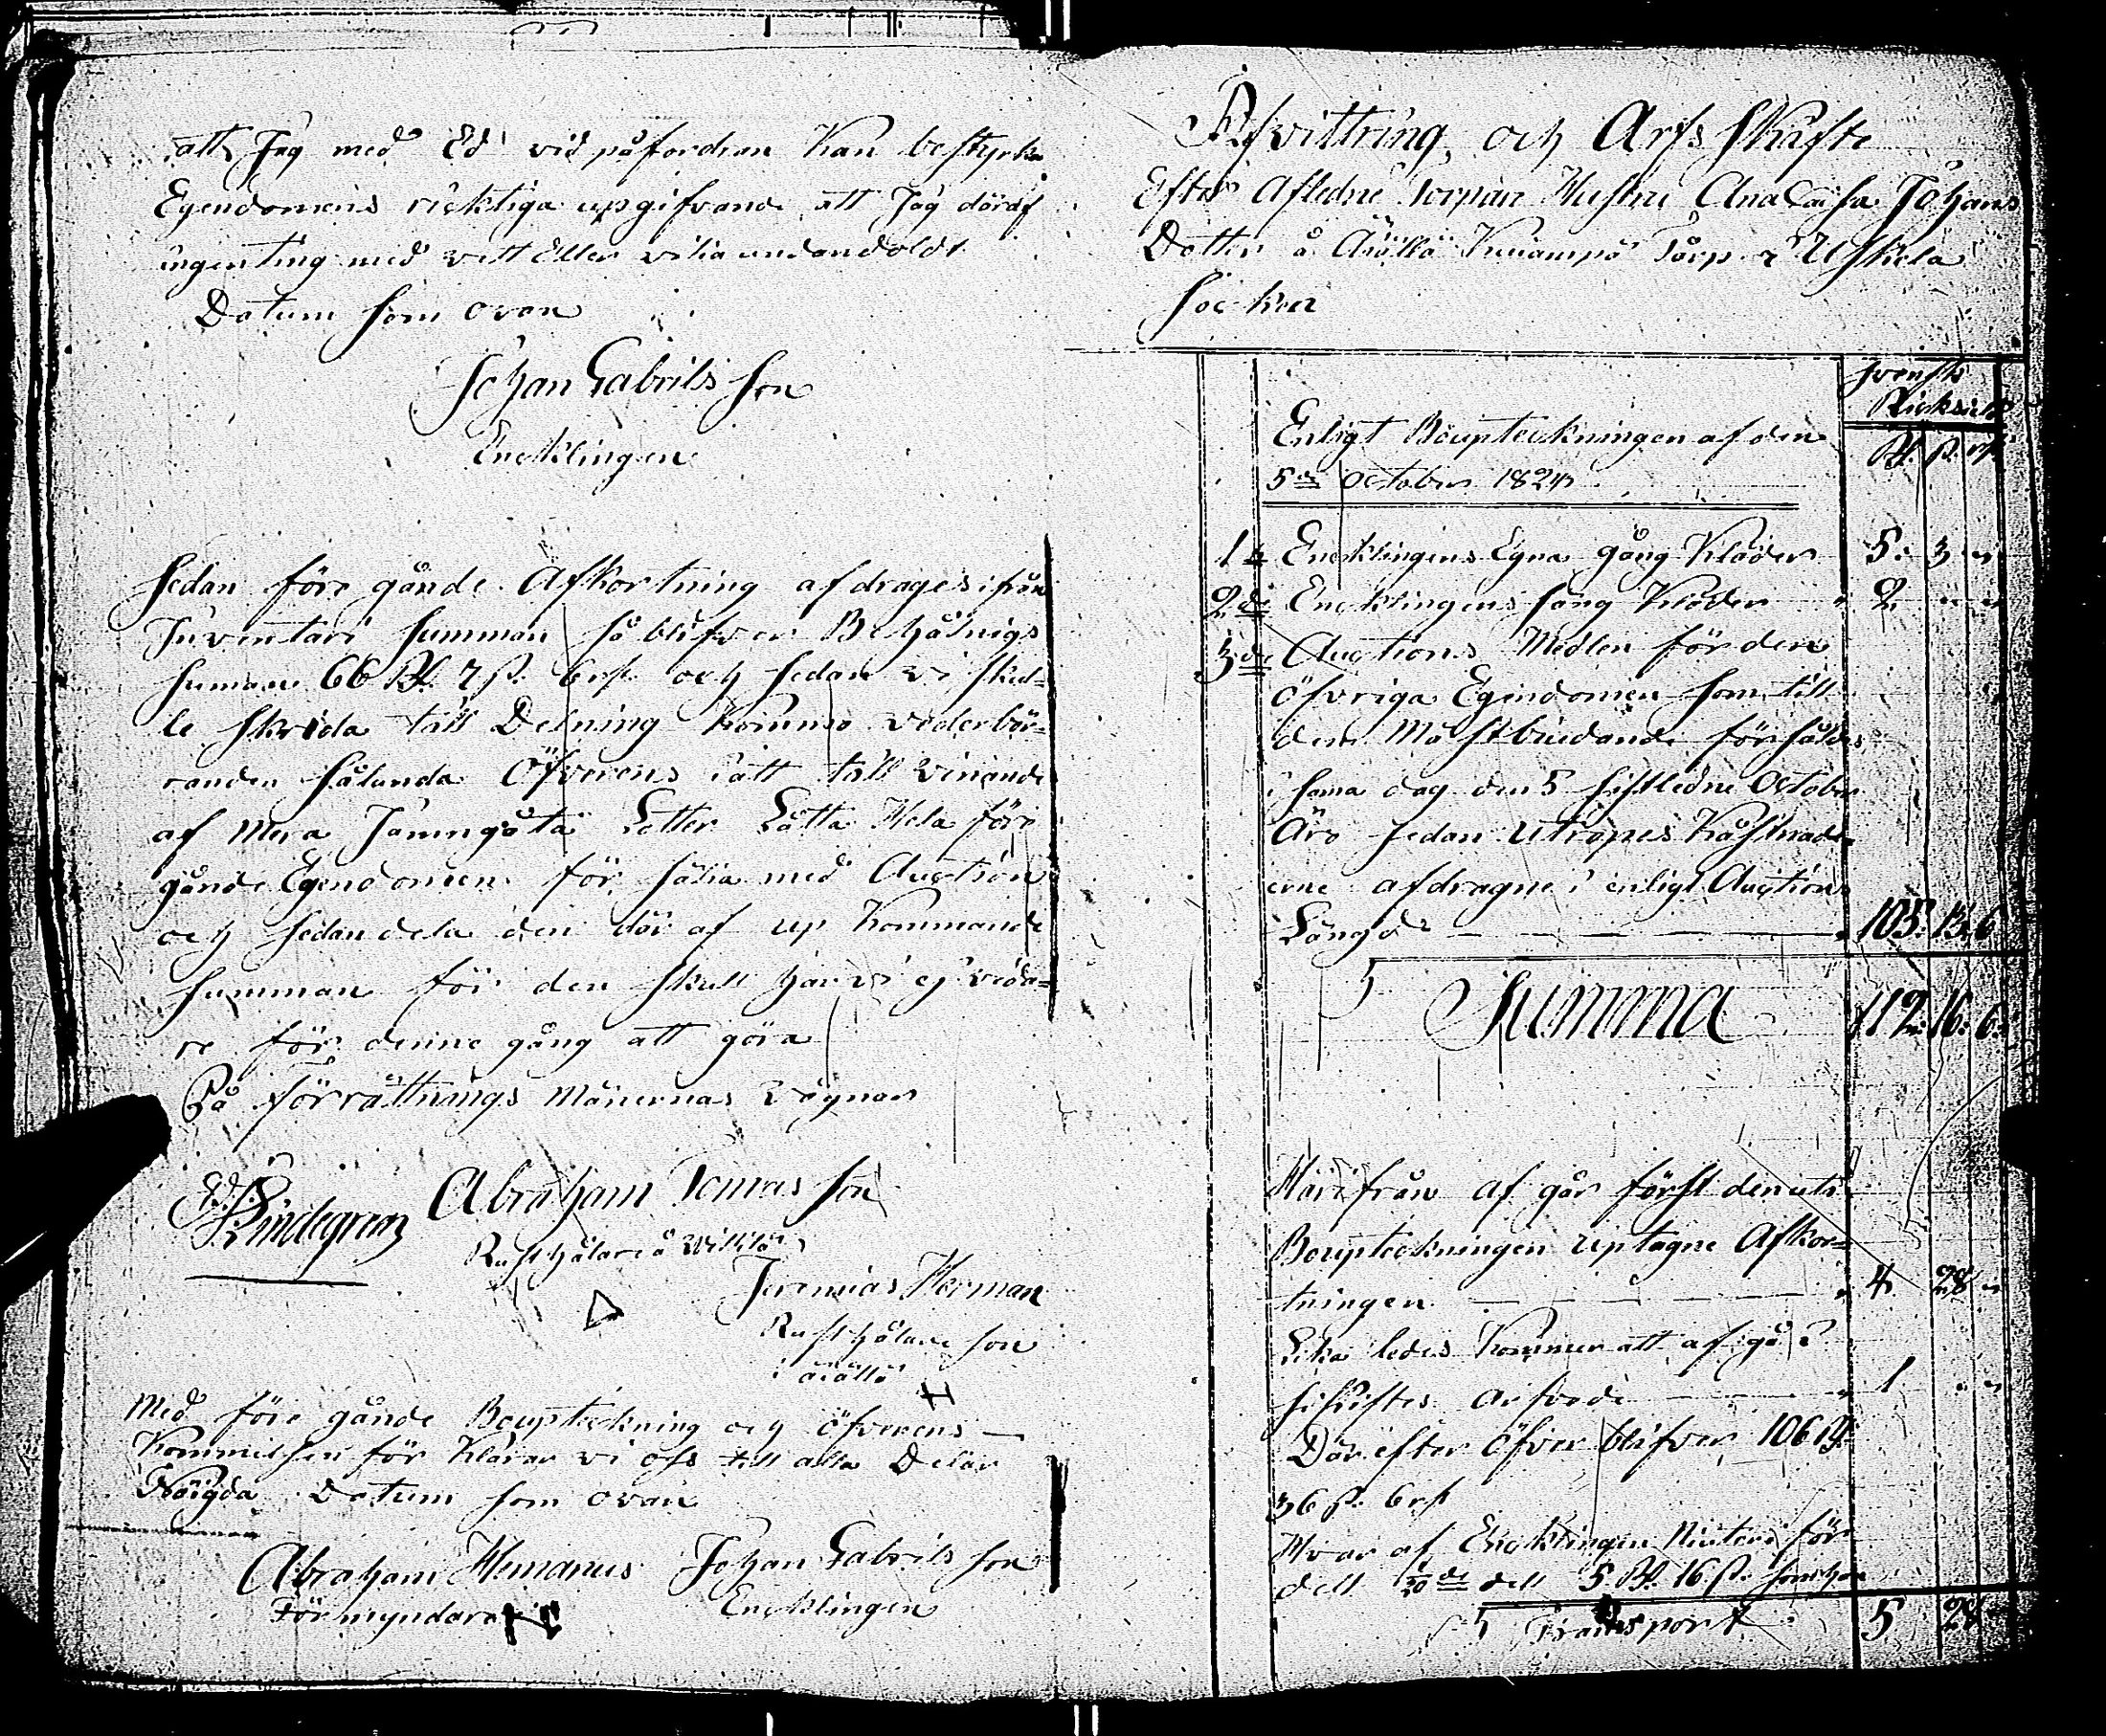 att Jag med Ed vid påfordran Kan bestyrka
Egendomens ricktiga upgifvande att Jag däraf
ingenting med vett Eller vilia undandoldt
Datum som ovan
Johan Gabrils son
Encklingen
sedan före gånde Afkortning afdrages ifrån
Inventari summan så blifver Behålnigs
suman 66 Rd. 7 s. 6 rs. och sedan vi skul-
le skrida till Delning komma vederbör-
randen sålunda Öfverens att till vinande
af mera Jämngåta Lotter Låtta Hela före
gånde Egendomen för sälia med Auction
och sedan dela den där af up Kommande
summan för den skull har vi ej vida-
re för denne gång att göra
På förrättnings mänernas vägnar
Ed. Lindegren Abraham Tomas son
Rusthålare å
Jeremias Herman
Rusthålare son
i
Med före gånde Boupteckning och öfverens-
Kommelsen för Klarar vi oss till alla Delar
Nöigda Datum som ovan
Abraham Hemanus Johan Gabrils son
Förmyndare Encklingen
Afvittring, och Arfs skifte
Efter Afledne Torpar Hustru Ana Caisa Johans
Dotter å Torp i Uskela
socken
svensk
Ricksgeld
Enligt Boupteckningen af den
Rd. s. rs.
5te October 1824
1a Encklingens Egna gång Kläder 5. 3 "
2di Encklingens säng Kläder 2 " "
3die Auctions Medlen för den
öfvriga Egendomen som till
den Mästbiudande försåldes
i sama dag den 5 sistledne October
Äro sedan utropes Kåstnade
erne afdragne i enligt Auctions
Längd 105. 13. 6
Summa 112. 16. 6
Härifrån af går först den uti
Boupteckningen uptagne Afkor-
tningen 4 28 "
Lika ledes Kommer att afgå
skiftes arfvode 1 " "
Där efter öfver blifver 106 Rd
36 s. 6 rs
Hvar af Encklingen Niuter för
dell 1/20de dell 5 Rd. 16 s. som
Transport 5 28